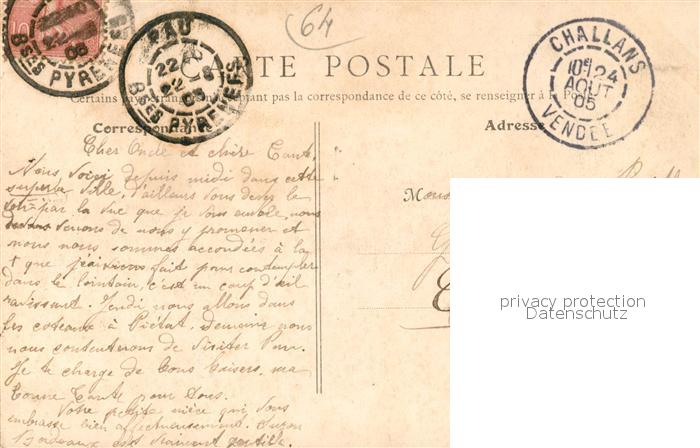 10
22
05
Bses PYRENEES
PAU
22
05
Bses PYRENEES
64
CARTE POSTALE
CHALLANS
10E 24
AOUT
05
VENDEE
pas la correspondance de ce côté, se renseigner à la
Correspondance
Adresse
Cher Oncle et chère Tante,
Nous voici depuis midi dans cette
superbe ville, d'ailleurs vous devez le
par la vue que je vous envoie, nous
venons de nous y promener et
nous nous sommes accoudées à la
que fait pour contempler
dans le lointain, c'est un coup d'œil
ravissant. Jeudi nous allons dans
les coteaux à Piétat. Demain nous
nous contenterons de visiter Pau.
Je te charge de bons baisers, ma
bonne Tante pour tous.
Votre petite nièce qui vous
embrasse bien affectueusement. Suzon
Bordeaux est vraiment gentille.
privacy protection
Datenschutz